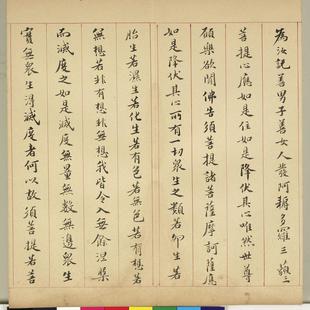 為汝說善男子善女人發阿耨多羅三藐三
菩提心應如是住如是降伏其心唯然世尊
願樂欲聞佛告須菩提諸菩薩摩訶薩應
如是降伏其心所有一切眾生之類若卵生若
胎生若濕生若化生若有色若無色若有想若
無想若非有想非無想我皆令入無餘涅槃
而滅度之如是滅度無量無數無邊眾生
實無眾生得滅度者何以故須菩提若菩